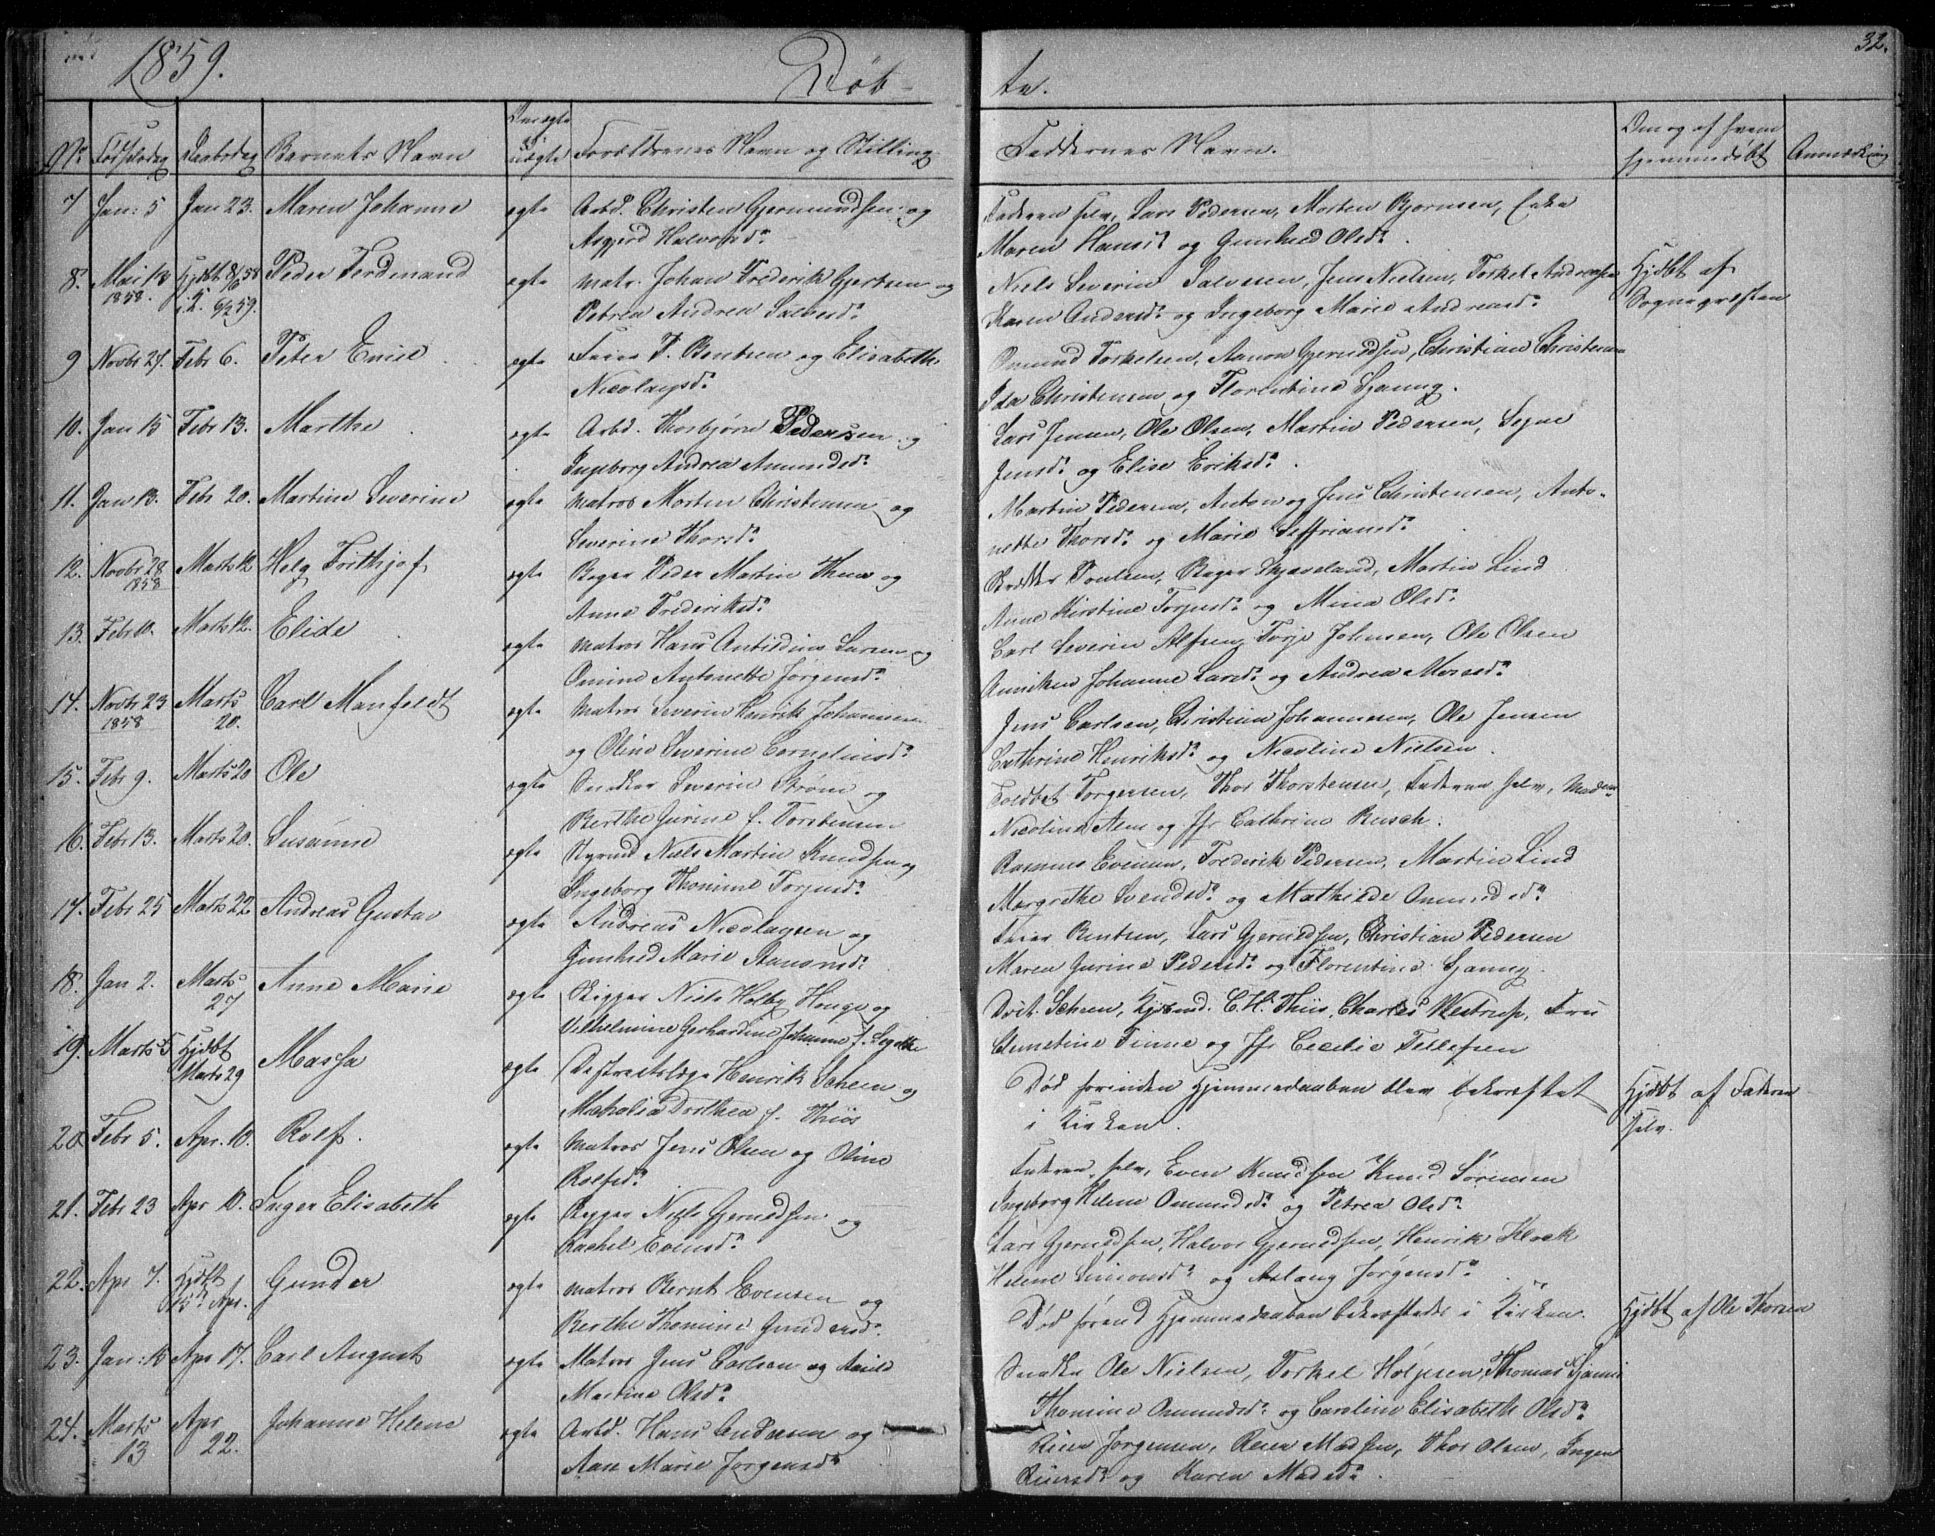 1859.
Døb-
te.
32.
No
Fødselsdag
Daabsdag
Barnets Navn
Forældrenes Navn og Stilling
Faddernes Navn.
Om og af hvem
hjemmedøbt
Anmærkning
7 Jan: 5 Jan 23. Maren Johanne ægte Arbd. Christen Gjermundsen og
Asgjerd Halvorsd:
Faderen selv, Lars Pedersen, Morten Bjørnsen, Enke
Maren Hansd: og Gunhild Olsd:
8. Mai 13 1858. Hjdbt 8/6 58 Peder Ferdinand ægte Matr. Johan Frederik Gjertsen og
i K. 6/2 59. Petrea Andrea Salvesd:
Niels Severin Salvesen, Jens Nielsen, Terkel Andersen
Karen Andersd: og Ingeborg Marie Andreasd:
Hjdbt af
Sognepræsten
9 Novbr 27. Febr 6. Peter Enise ægte Faier P. Bentsen og Elisabeth
Nicolaysd:
Omund Terkelsen, Aanon Gjeruldsen, Christian Christensen
Ida Christensen og Florentine Gjannug.
10. Jan 15 Febr 13. Marthe ægte Arbd. Thorbjørn Pedersen og
Ingeborg Andrea Amundsd:
Lars Jensen, Ole Olsen, Martin Pedersen, Signe
Jensd: og Elise Eriksd:
11. Jan 13. Febr 20. Martine Severine ægte Matros Morten Christensen og
Severine Thorsd:
Martin Pedersen, Anton og Jens Christensen, Anto-
nette Thorsd: og Marie Zeffriansd:
12. Novbr 28 1858 Marts 12 Helg Frithjof ægte Bager Peder Martin Thue og
Anne Frederiksd:
Bødker Poulsen, Bager Skjæveland, Martin Lind
Anne Kirstine Torjusd: og Mina Olsd:
13. Febr 10. Marts 12. Elide ægte Matros Hans Antidius Larsen og
Omine Antonette Jørgensd:
Carl Severin Alfsen, Terje Johnsen, Ole Olsen
Anniken Johanne Larsd: og Andrea Moesd:
14. Novbr 23 1858 Marts 20. Carl Manfeldt ægte Matros Severin Henrik Johannesen
og Oline Severine Corneliusd:
Jens Carlsen, Christian Johannesen, Ole Jensen
Cathrine Henriksd: og Nicoline Nielsen.
15. Febr 9. Marts 20 Ole ægte Snedker Severin Strøm og
Berthe Gurine f. Torstensen
Toldbet. Torgersen, Thor Thorstensen, Faderen selv, Madam
Nicoline Aem og Jfr Cathrine Rusch.
16. Febr 13. Marts 20. Susanne ægte Styrmd Niels Martin Knudsen og
Ingeborg Thomine Torjusd:
Rasmus Evensen, Frederik Pedersen, Martin Lind
Margrethe Svendsd: og Mathilde Omundsd:
17. Febr 25 Marts 22 Andreas Gustav ægte Andreas Nicolaysen og
Gunhild Marie Aanonsd:
Faier Bentsen, Lars Gjeruldsen, Christian Pedersen
Maren Gurine Pedersd: og Florentine Gjannug.
18. Jan 2. Marts 27 Anne Marie ægte Skipper Niels Holby Hauge og
Vilhelmine Gerhardine Johanne f.
Dvit. Scheen, Kjøbmd. C.H. Thiis, Charles Westrup, Fru
Ernestine Finne og Jfr Cecilie Tellefsen
19. Marts 5 Hjdbt Marts 29 Massa ægte Distriktslæge Henrik Scheen og
Mathalia Dorthea f. Thiis
Død forinden Hjemmedaaben blev bekræftet
i Kirken.
Hjdbt af Faderen
selv.
20 Febr 5. Apr. 10. Rolf. ægte Matros Jens Olsen og Oline
Rolfsd:
Faderen selv, Even Knudsen Knud Sørensen
Ingeborg Helene Omundsd: og Petrea Olsd:
21. Febr 23 Apr 10. Inger Elisabeth ægte Skipper Niels Gjeruldsen og
Rachel Evensd:
Lars Gjeruldsen, Halvor Gjeruldsen, Henrik Klock
Helene Simonsd: og Aslaug Jørgensd:
22. Apr 7. Hjdbt 15d Apr. Gunder ægte Matros Bernt Evensen og
Berthe Thomine Gundersd:
Død førend Hjemmedaaben bekræftedes i Kirken.
Hjdbt af Ole Thorsen
23. Jan: 15 Apr 17. Carl August ægte Matros Jens Carlsen og
Martine Olsd:
Snedker Ole Nielsen, Terkel Holjesen, Thomas Gjannug
Thomine Omundsd: og Caroline Elisabeth Olsd:
24. Marts 13 Apr 22. Johanne Helene ægte Arbd. Hans Andersen og
Aan Marie Jørgensd:
Reier Jørgensen, Reier Madsen, Thor Olsen, Inger
Reiersd: og Karen Madsd: